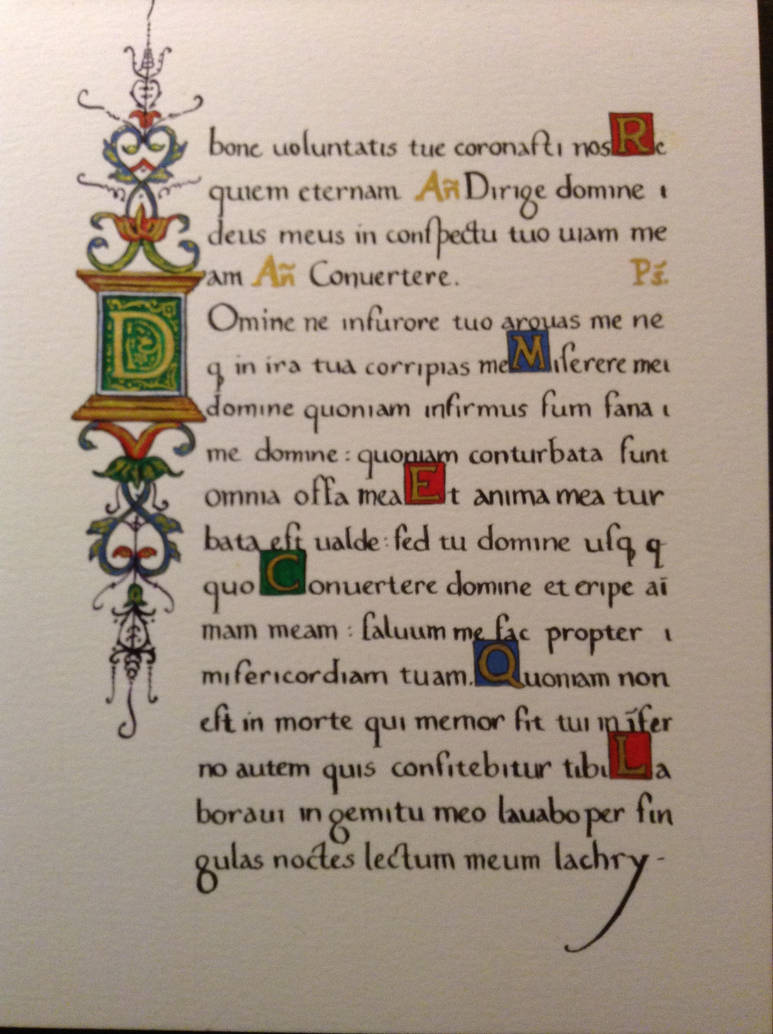 bone uoluntatis tue coronaſti nos Re
quiem eternam Añ Dirige domine ı
deus meus in conſpectu tuo uiam me
am Añ Conuertere. Ps̄.
Domine ne inſurore tuo arguas me ne
qꝫ in ira tua corripias me Miſerere mei
domine quoniam infirmus ſum ſana ı
me domine : quoniam conturbata ſunt
omnia oſſa mea Et anima mea tur
bata eſt ualde : ſed tu domine uſqꝫ q
quo Conuertere domine et eripe aī
mam meam : ſaluum me fac propter ı
miſericordiam tuam. Quoniam non
eſt in morte qui memor ſit tui in īfer
no autem quis confitebitur tibi La
boraui in gemitu meo lauabo per ſin
gulas noctes lectum meum lachry-